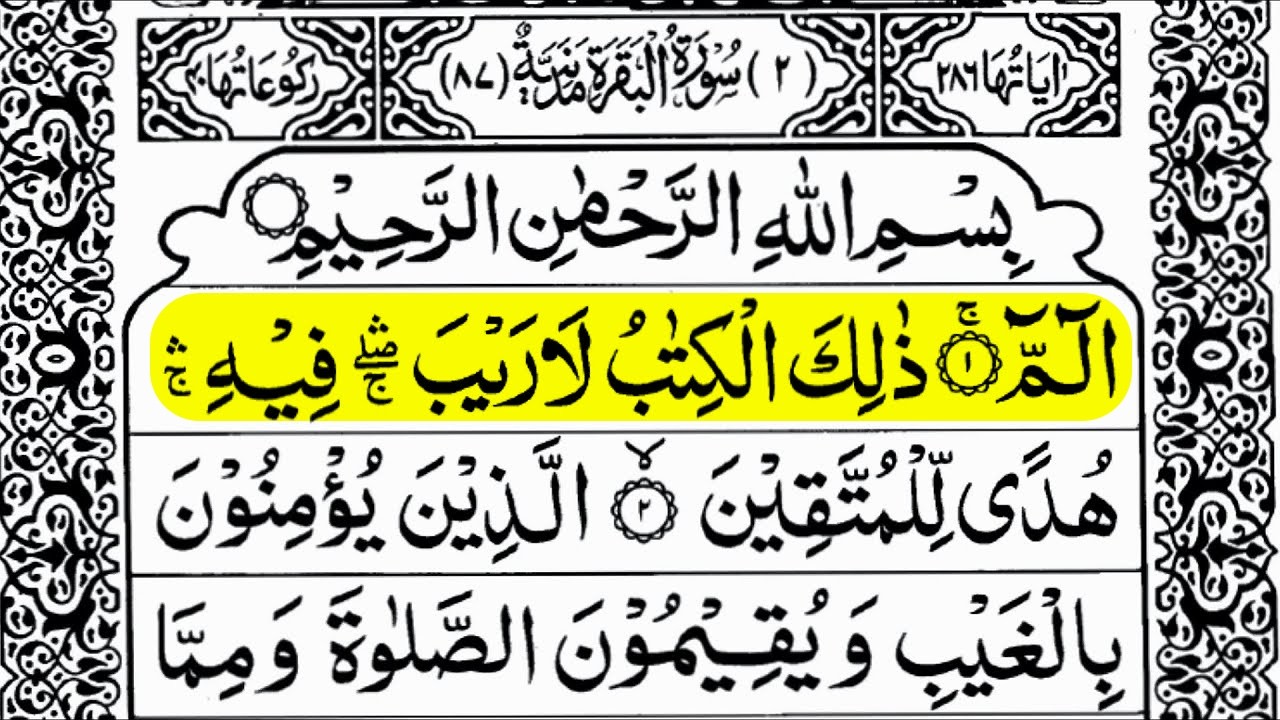 اٰيَاتُهَا ٢٨٦ (٢) سُوْرَةُ الْبَقَرَةِ مَدَنِيَّةٌ (٨٧) رُكُوْعَاتُهَا ٤٠
بِسْمِ اللّٰهِ الرَّحْمٰنِ الرَّحِيْمِ
الٓمّٓ ۚ ١ ذٰلِكَ الْكِتٰبُ لَا رَيْبَ ۛۖۚ فِيْهِ ۛۚ
هُدًى لِّلْمُتَّقِيْنَ ۙ ٢ الَّذِيْنَ يُؤْمِنُوْنَ
بِالْغَيْبِ وَيُقِيْمُوْنَ الصَّلٰوةَ وَمِمَّا